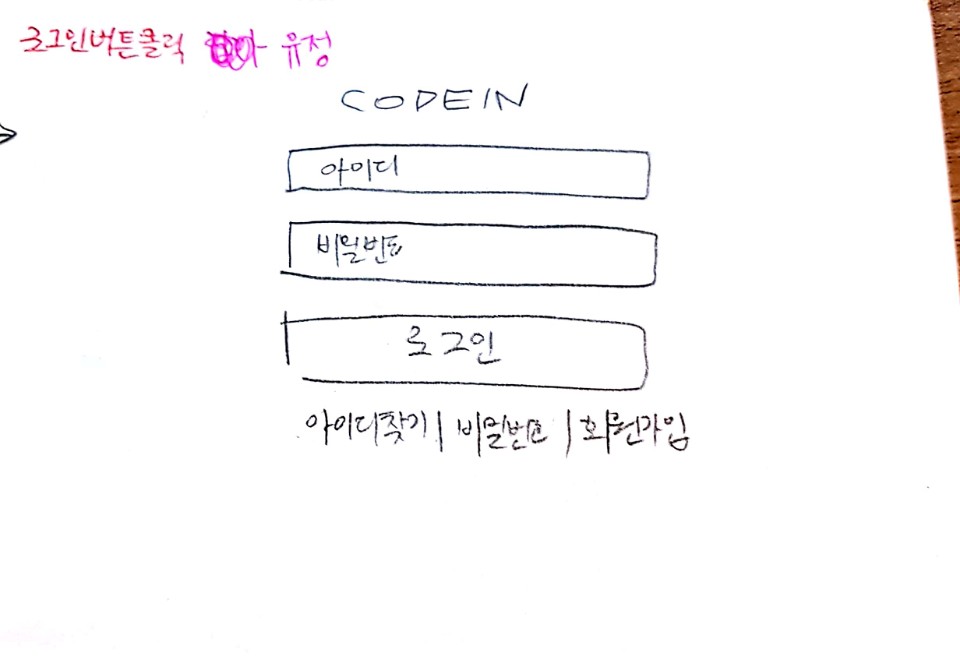 로그인버튼클릭 유정
CODEIN
아이디
비밀번호
로그인
아이디찾기 | 비밀번호 | 회원가입